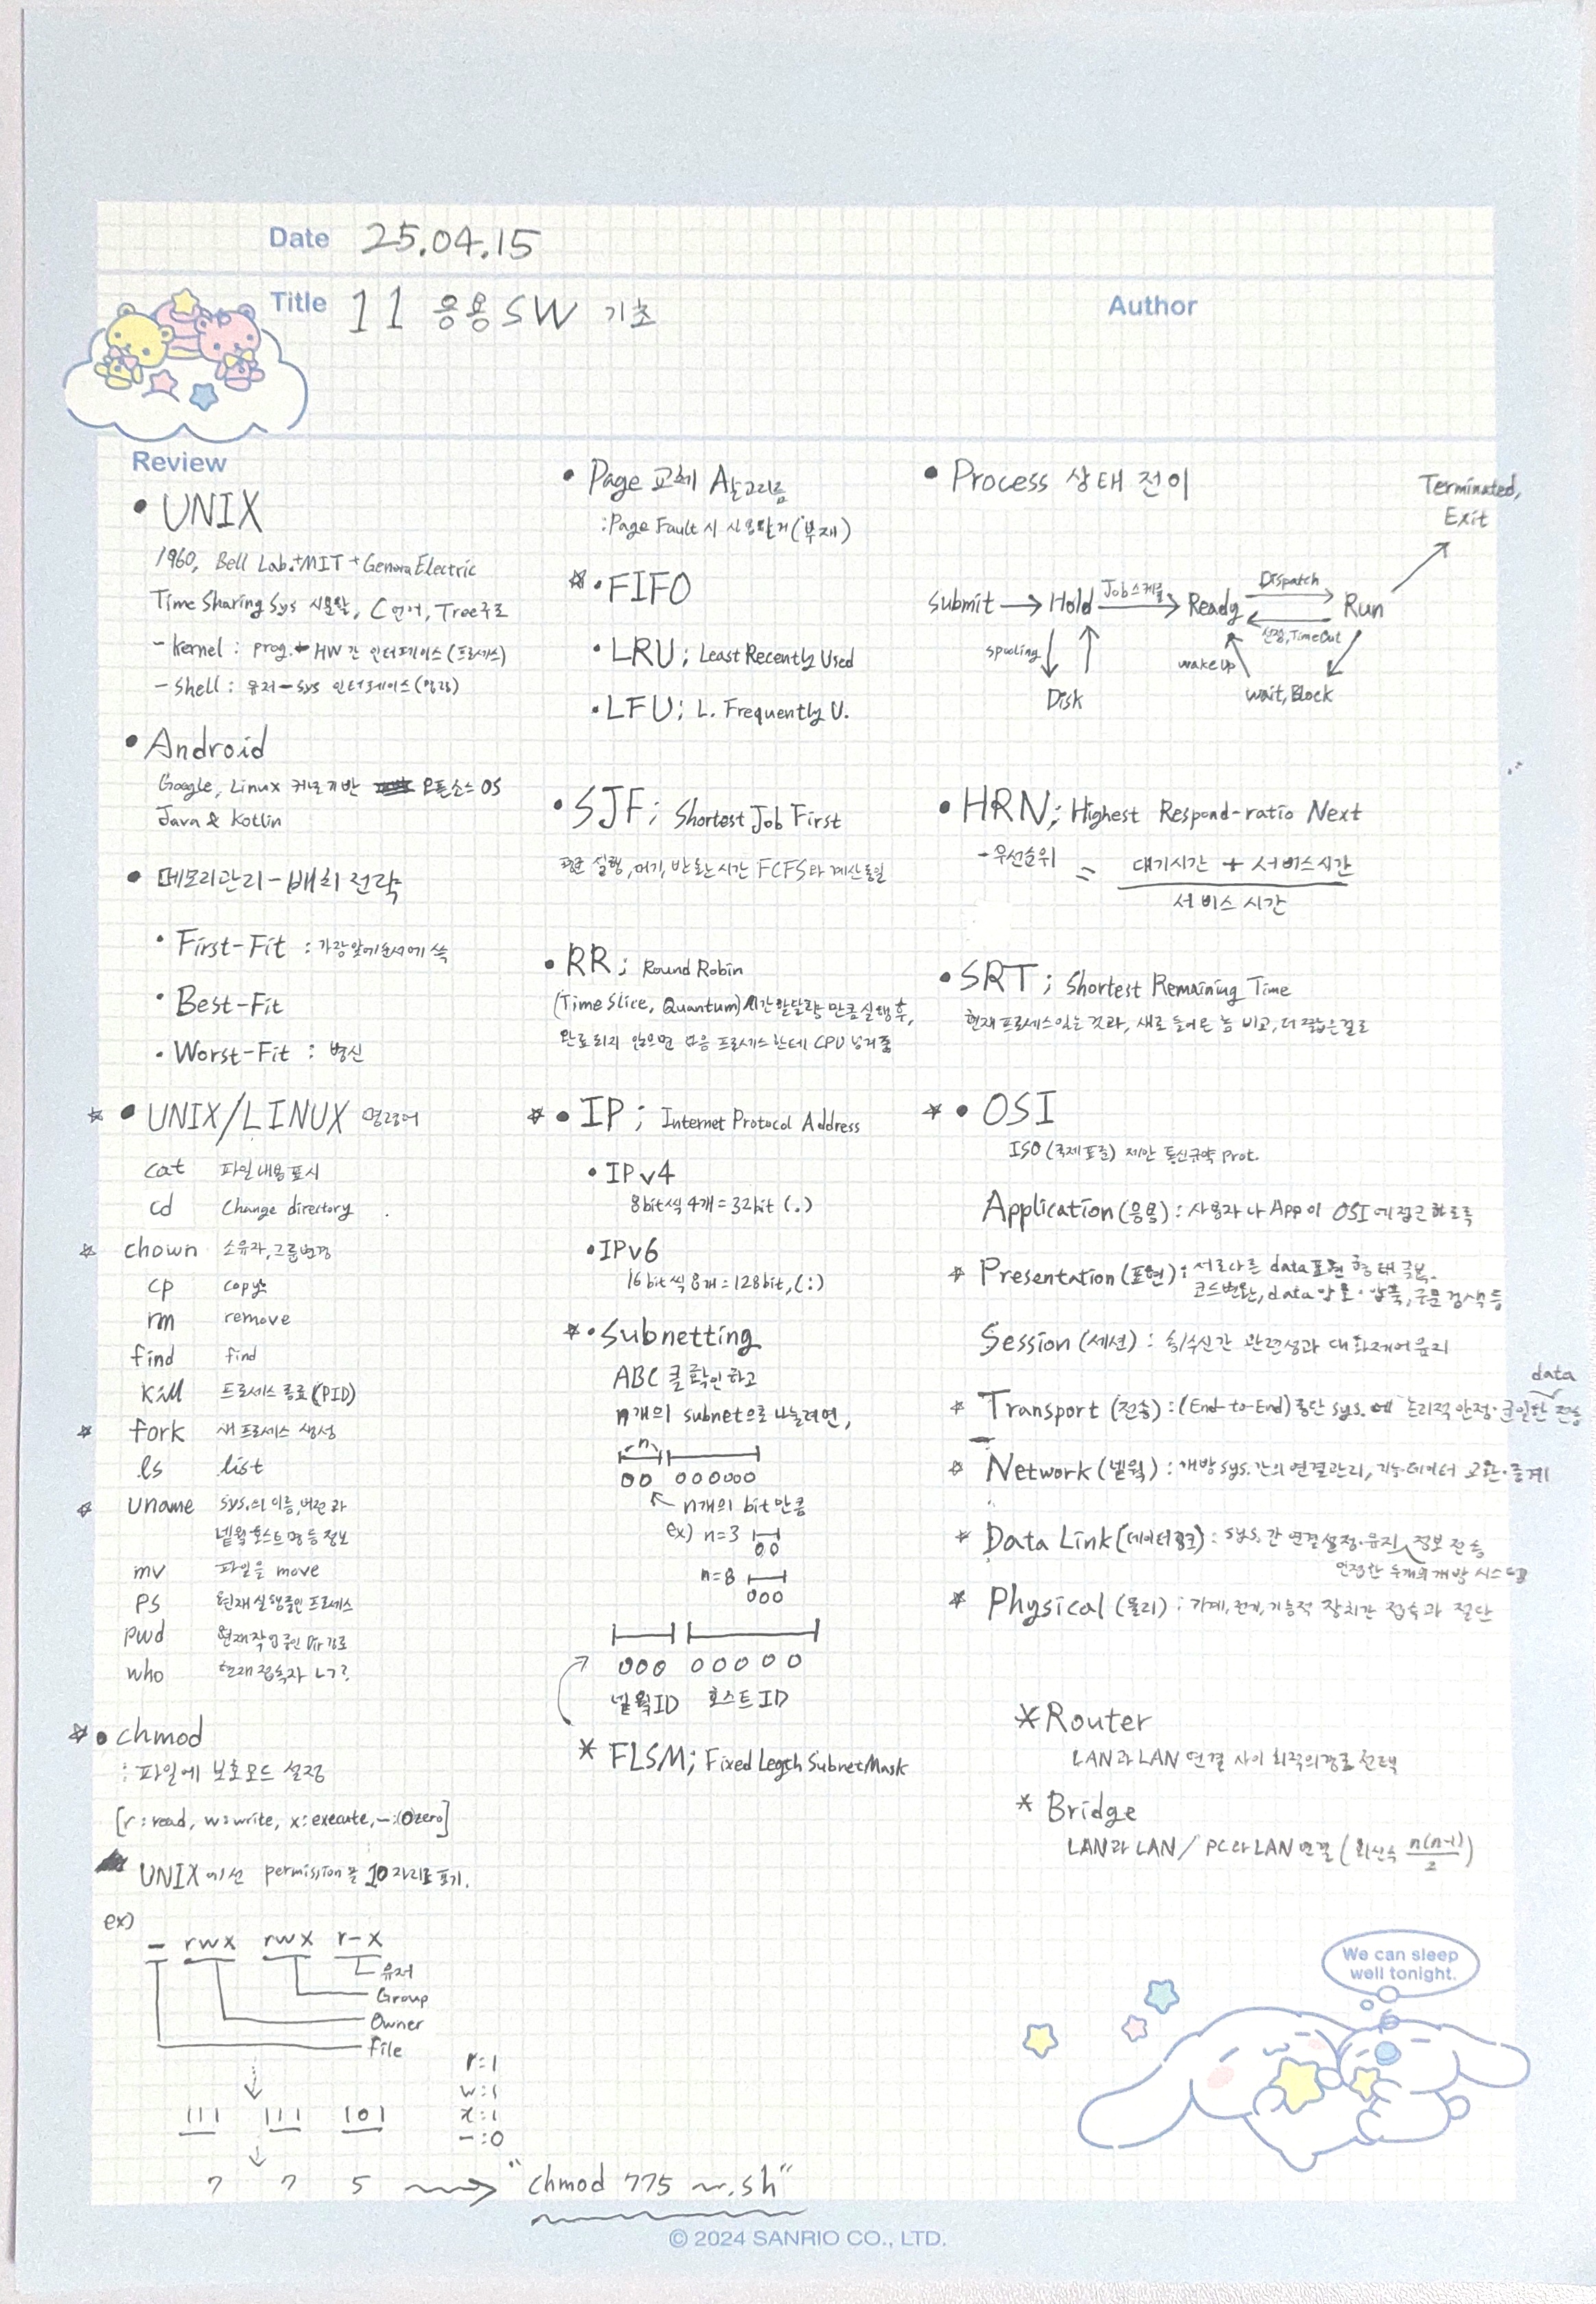 Date 25.04.15
Title 11 응용SW 기초
Author
Review
• UNIX
1960, Bell Lab.+MIT+GeneraElectric
Time Sharing Sys 시분할, C언어, Tree구조
- kernel : prog. HW 간 인터페이스(프로세스)
- shell : 유저-sys 인터페이스(명령)
• Android
Google, Linux 커널기반 오픈소스 OS
Java & Kotlin
• 메모리관리-배치 전략
• First-Fit : 가장앞에순서에 쏙
• Best-Fit
• Worst-Fit : 병신
☆ • UNIX/LINUX 명령어
cat 파일내용표시
cd Change directory
☆ chown 소유자,그룹변경
cp copy
rm remove
find find
kill 프로세스 종료(PID)
☆ fork 새 프로세스 생성
ls list
☆ uname sys.의 이름,버전과
넽웍호스트명 등 정보
mv 파일을 move
ps 현재실행중인 프로세스
pwd 현재작업중인 Dir경로
who 현재 접속자 ㄴㄱ?
☆ • chmod
: 파일에 보호모드 설정
[r:read, w:write, x:execute, -:(0)zero]
UNIX에선 permission을 10자리로 표기.
ex)
- rwx rwx r-x
유저
Group
Owner
file
r:1
w:1
x:1
-:0
111 111 101
7 7 5 "chmod 775 ~.sh"
• Page 교체 알고리즘
:Page Fault시 (부재)
☆ • FIFO
• LRU; Least Recently Used
• LFU; L. Frequently U.
• SJF; Shortest Job First
평균 실행,대기,반환시간 FCFS와 계산동일
• RR; Round Robin
(Time Slice, Quantum)시간할당량 만큼실행 후,
완료되지 않으면 다음 프로세스한테 CPU 넘겨줌
☆ • IP; Internet Protocol Address
• IPv4
8bit씩 4개=32bit (.)
• IPv6
16bit씩 8개=128bit, (:)
☆ • Subnetting
ABC 클 확인하고
n개의 subnet으로 나눌려면,
n
00 000000
n개의 bit 만큼
ex) n=3
00
n=8
000
000 00000
넽웍ID 호스트ID
* FLSM; Fixed Legth SubnetMask
• Process 상태 전이
Terminated,
Exit
Submit → Hold Job스케줄 Ready Dispatch Run
선점,TimeOut
spooling
wake up
Disk
wait, Block
• HRN; Highest Respond-ratio Next
-우선순위 = 대기시간 + 서비스시간
서비스 시간
• SRT; Shortest Remaining Time
현재프로세스있는것과, 새로 들어온 놈 비교, 더짧은걸로
☆ • OSI
ISO(국제표준) 제안 통신규약 Prot.
Application(응용) : 사용자나 App이 OSI에접근하도록
☆ Presentation(표현) : 서로다른 data표현 형태
코드변환, data암호·압축, 구문검색 등
Session(세션) : 송/수신간 관련성과 대화제어유지
data
☆ Transport(전송) : (End-to-End)종단 sys.에 논리적안정·균일한 전송
☆ Network(넽웍) : 개방sys.간의 연결관리, 데이터 교환·중계
☆ Data Link(데이터링크) : sys.간 연결설정·유지 정보 전송
인접한 두개의 개방 시스템
☆ Physical(물리) : 기계,전기,기능적 장치간 접속과 절단
* Router
LAN과 LAN 연결 사이 최적의경로 선택
* Bridge
LAN과 LAN / PC와 LAN 연결 (회선수 n(n-1)
2)
We can sleep
well tonight.
© 2024 SANRIO CO., LTD.